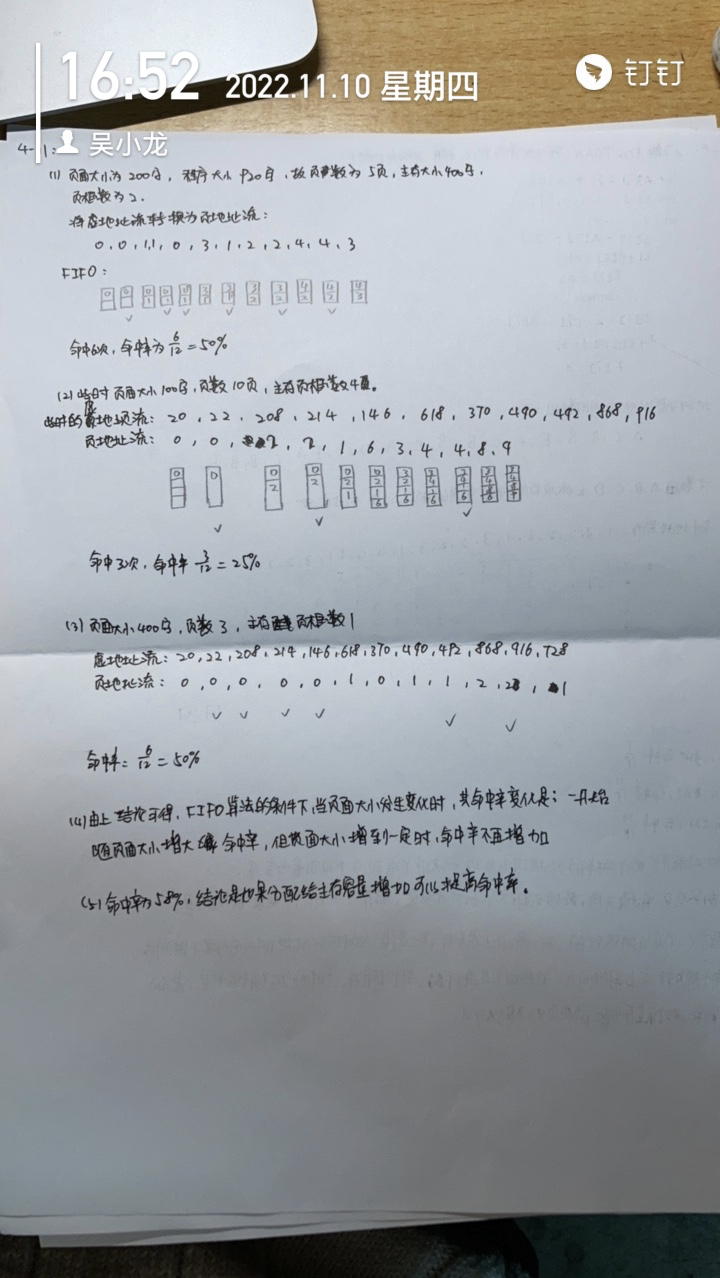 16:52 2022.11.10 星期四
钉钉
吴小龙
4-1:
(1) 页面大小为200字，程序大小920字，故页数为5页，主存大小400字，
页框数为2。
将虚地址流转换为页地址流：
0，0，1，1，0，3，1，2，2，4，4，3
FIFO：
命中6次，命中率为 6/12 = 50%
(2) 此时页面大小100字，页数10页，主存页框数4。
此时的虚地址流：20，22，208，214，146，618，370，490，492，868，916
页地址流：0，0，2，2，1，6，3，4，4，8，9
0 0 0 2 0 2 0 2 1 0 2 1 6
命中3次，命中率 3/12 = 25%
(3) 页面大小400字，页数3，主存页框数1
虚地址流：20，22，208，214，146，618，370，490，492，868，916，728
页地址流：0，0，0，0，0，1，0，1，1，2，2，1
命中率= 6/12 = 50%
(4) 由上结论可得，FIFO算法的条件下，当页面大小分生变化时，其命中率变化是：一开始
随页面大小增大 命中率，但页面大小增到一定时，命中率不再增加
(5) 命中率为58%，结论是如果分配给主存容量增加可以提高命中率。